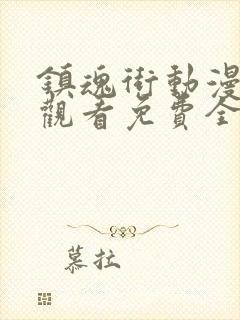 鎮魂街動漫
觀看免費全
慕拉